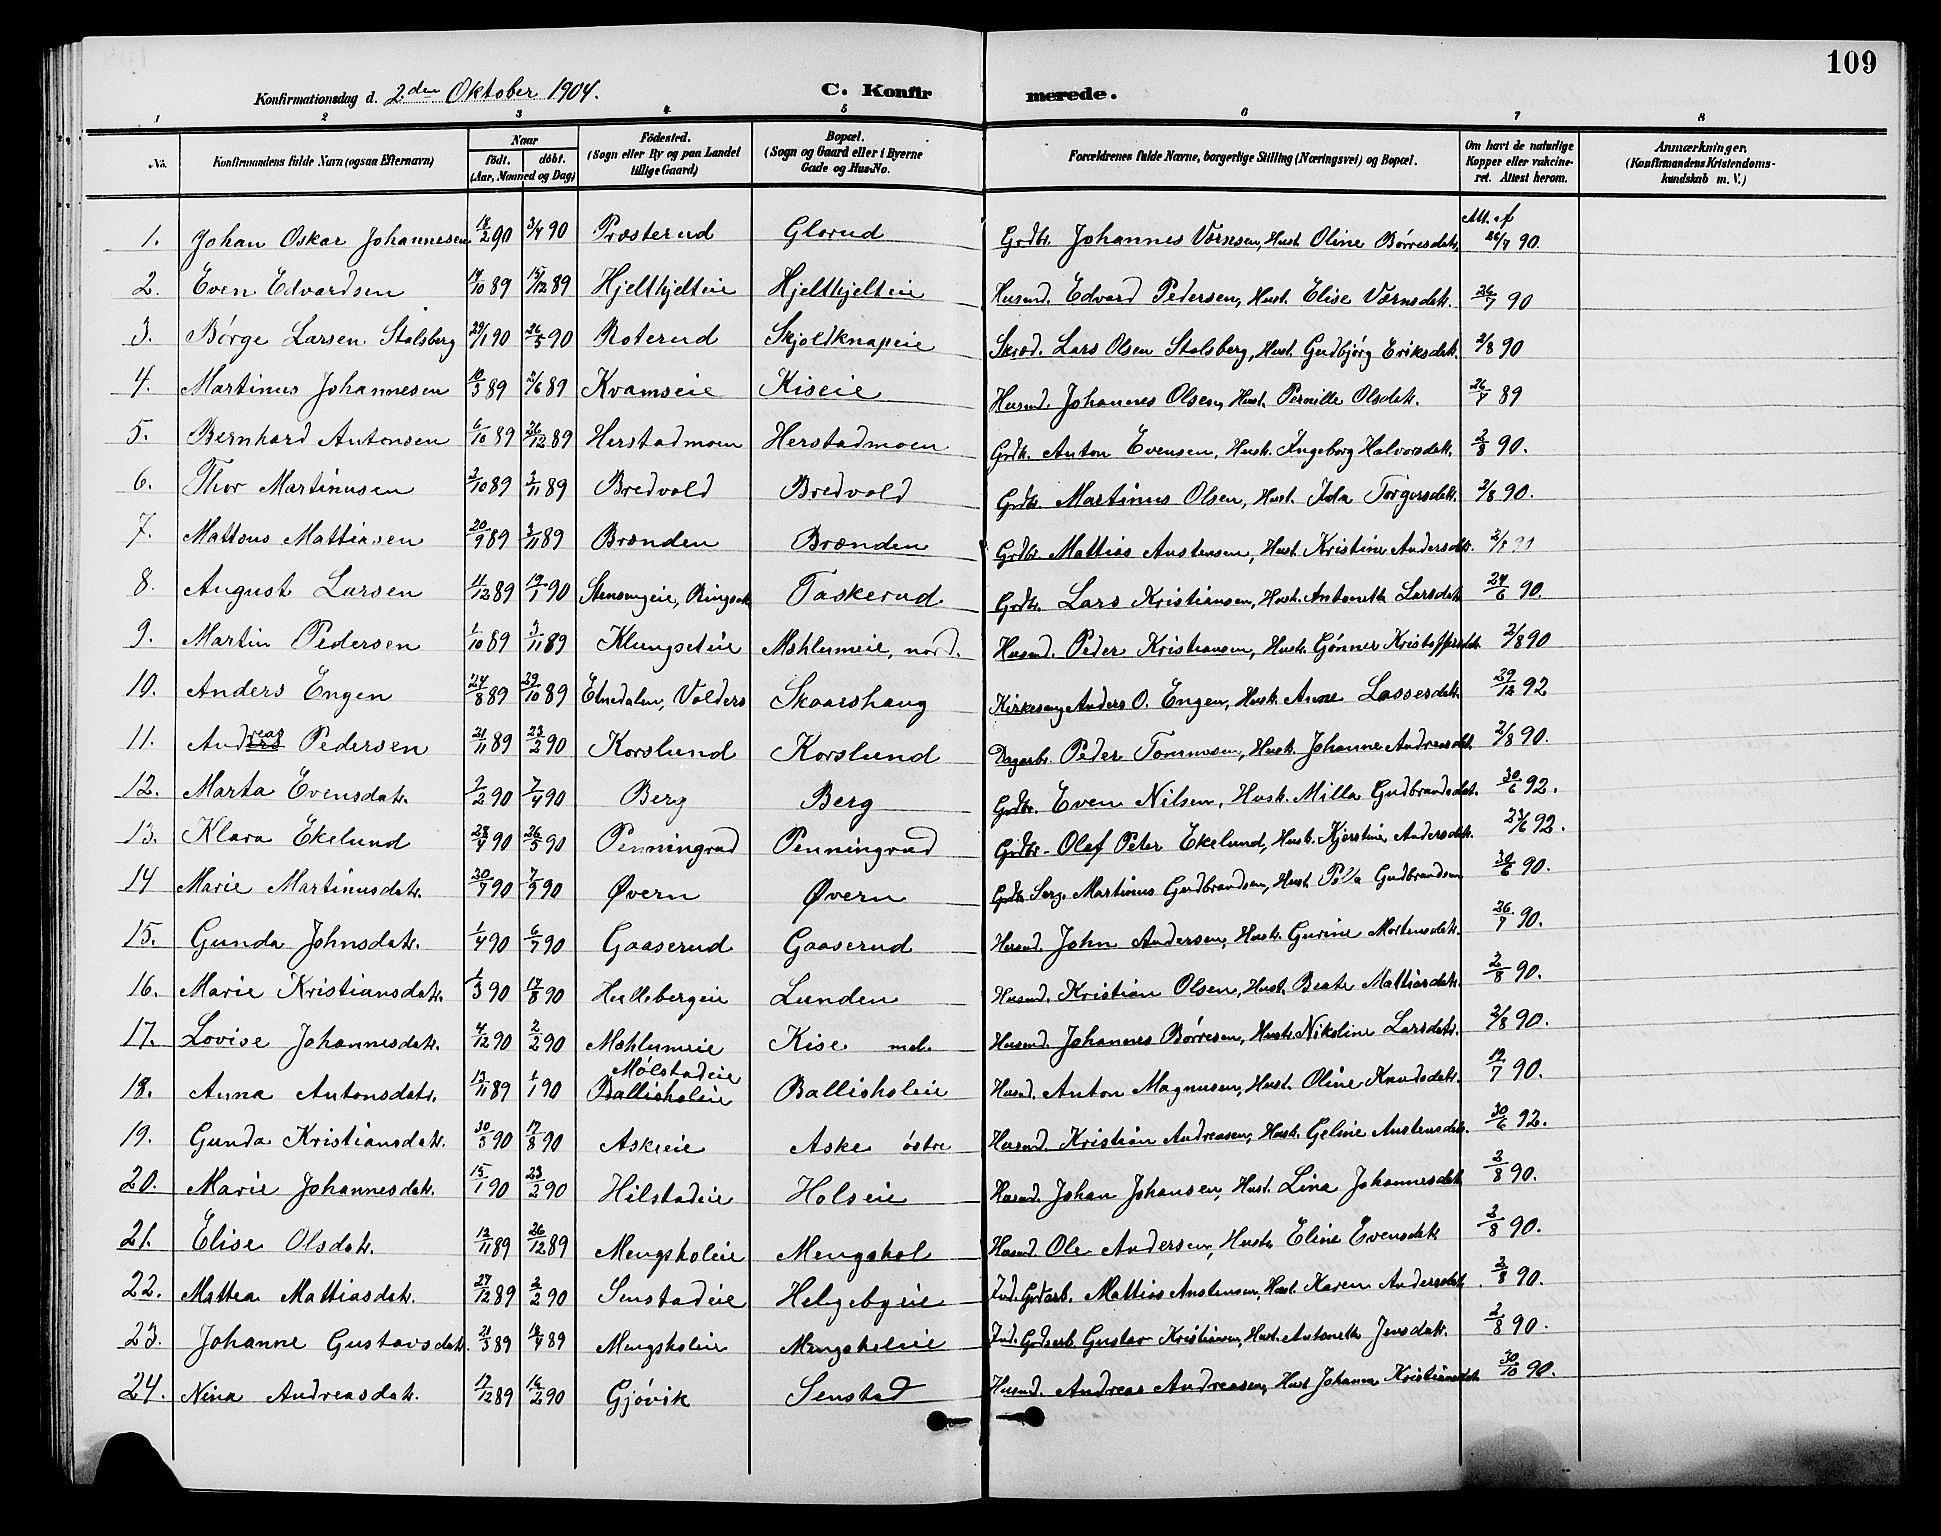 109
Konfirmationsdag d. 2den Oktober 1904. C. Konfirmerede.
1 2 3 4 5 6 7 8
No. Konfirmandens fulde Navn (ogsaa Efternavn) Naar født. døbt. (Aar, Maaned og Dag) Fødested. (Sogn eller By og paa Landet tillige Gaard) Bopæl. (Sogn og Gaard eller i Byerne Gade og Hus-No. Forældrenes fulde Navne, borgerlige Stilling (Næringsvei) og Bopæl. Om havt de naturlige Kopper eller vakcineret. Attest herom. Anmærkninger. (Konfirmandens Kristendomskundskab m. V.)
1. Johan Oskar Johannesen 18/2 90 3/4 90 Præsterud Glorud Grdbr. Johannes Værnesen, Hust. Oline Børresdatr. Att. af 26/7 90.
2. Even Edvardsen 14/10 89 15/12 89 Hjelthjelteie Hjelthjelteie Husmd. Edvard Pedersen, Hust. EliseVærnsdatr. 26/7 90
3. Børge Larsen Stalsberg 29/1 90 26/5 90 Roterud Skjoldknapeie Skræd. Lars Olsen Stalsberg, Hust. Gudbjørg Eriksdatr. 2/8 90
4. Martinus Johannesen 10/3 89 2/6 89 Kvamseie Kiseie Husmd. Johannes Olsen, Hust. Pernille Olsdatr. 26/7 89
5. Bernhard Antonsen 6/10 89 26/12 89 Herstadmoen Herstadmoen Grdbr. Anton Evensen, Hust. Ingeborg Halvorsdatr. 2/8 90.
6. Thor Martinusen 2/10 89 3/11 89 Bredvold Bredvold Grdbr. Martinus Olsen, Hust. Ida Torgersdatr. 2/8 90.
7. Matteus Mattiasen 20/9 89 3/11 89 Brænden Brænden Grdbr. Mattias Austensen, Hust. Kristine Andersdatr.
8. August Larsen 11/12 89 19/1 90 Stensengeie, Ringsak. Taskerud Grdbr. Lars Kristiansen, Hust. Antonette Larsdatr. 24/6 90.
9. Martin Pedersen 1/10 89 3/11 89 Klungseteie Mæhlumeie, nord. Husmd. Peder Kristiansen, Hust. Gønner Kristoffersdatr. 2/8 90
10. Anders Engen 24/8 89 29/10 89 Etnedalen, Valders Skaarshaug Kirkesang. Anders O. Engen, Hust. Anne Lassesdatr. 29/12 92
11. Andreas Pedersen 21/11 89 23/2 90 Korslund Korslund Dagarb. Peder Tommesen, Hust. Johanne Andreasdatr. 2/8 90.
12. Marta Evensdatr. 2/2 90 7/4 90 Berg Berg Grdbr. Even Nilsen, Hust. Milla Gudbrandsdatr. 30/6 92.
13. Klara Ekelund 28/4 90 26/5 90 Penningrud Penningrud Grdbr. Olaf Peter Ekelund, Hust. Kjerstine Andersdatr. 23/6 92.
14 Marie Martinusdatr. 30/7 90 7/9 90 Øvern Øvern Grdbr. Serg. Martinus Gudbrandsen, Hust. Gudbrandsen 30/6 90.
15. Gunda Johnsdatr. 1/4 90 6/7 90 Gaaserud Gaaserud Husmd. John Andersen, Hust. Gurine Mortensdatr. 26/7 90.
16. Marie Kristiansdatr. 1/3 90 17/8 90 Hullebergeie Lunden Husmd. Kristian Olsen, Hust. Beate Mattiasdatr. 2/8 90.
17. Lovise Johannesdatr. 4/12 90 2/2 90 Mæhlumeie Kise mel. Husmd. Johannes Børresen, Hust. Nikoline Larsdatr. 2/8 90.
18. Anna Antonsdatr. 13/11 89 1/1 90 Mølstadeie Ballisholeie Ballisholeie Husmd. Anton Magnusen, Hust. Oline Knudsdatr. 12/7 90.
19. Gunda Kristiansdatr. 30/5 90 17/8 90 Askeeie Aske østre Husmd. Kristian Andreasen, Hust. Geline Austensdatr. 30/6 92.
20. Marie Johannesdatr. 15/1 90 23/2 90 Hilstadeie Holseie Husmd. Johan Johansen, Hust. Lina Johannesdatr. 2/8 90.
21. Elise Olsdatr. 12/11 89 26/12 89 Mengsholeie Mengshol Husmd. Ole Andersen, Hust. Eline Evensdatr. 2/8 90.
22. Mattea Mattiasdatr. 27/12 89 2/2 90 Senstadeie Helgebyeie Ind. Grdarb. Mattias Anstensen, Hust. Karen Andersdatr. 2/8 90.
23. Johanne Gustavsdatr. 21/3 89 18/4 89 Mengsholeie Mengsholeie Ind. Grdsarb. Gustav Kristiansen, Hust. Antonette Jensdatr. 2/8 90.
24. Nina Andreasdatr. 17/12 89 16/2 90 Gjøvik Senstad Husmd. Andreas Andreasen, Hust. Johanne Kristiansdatr. 30/10 90.